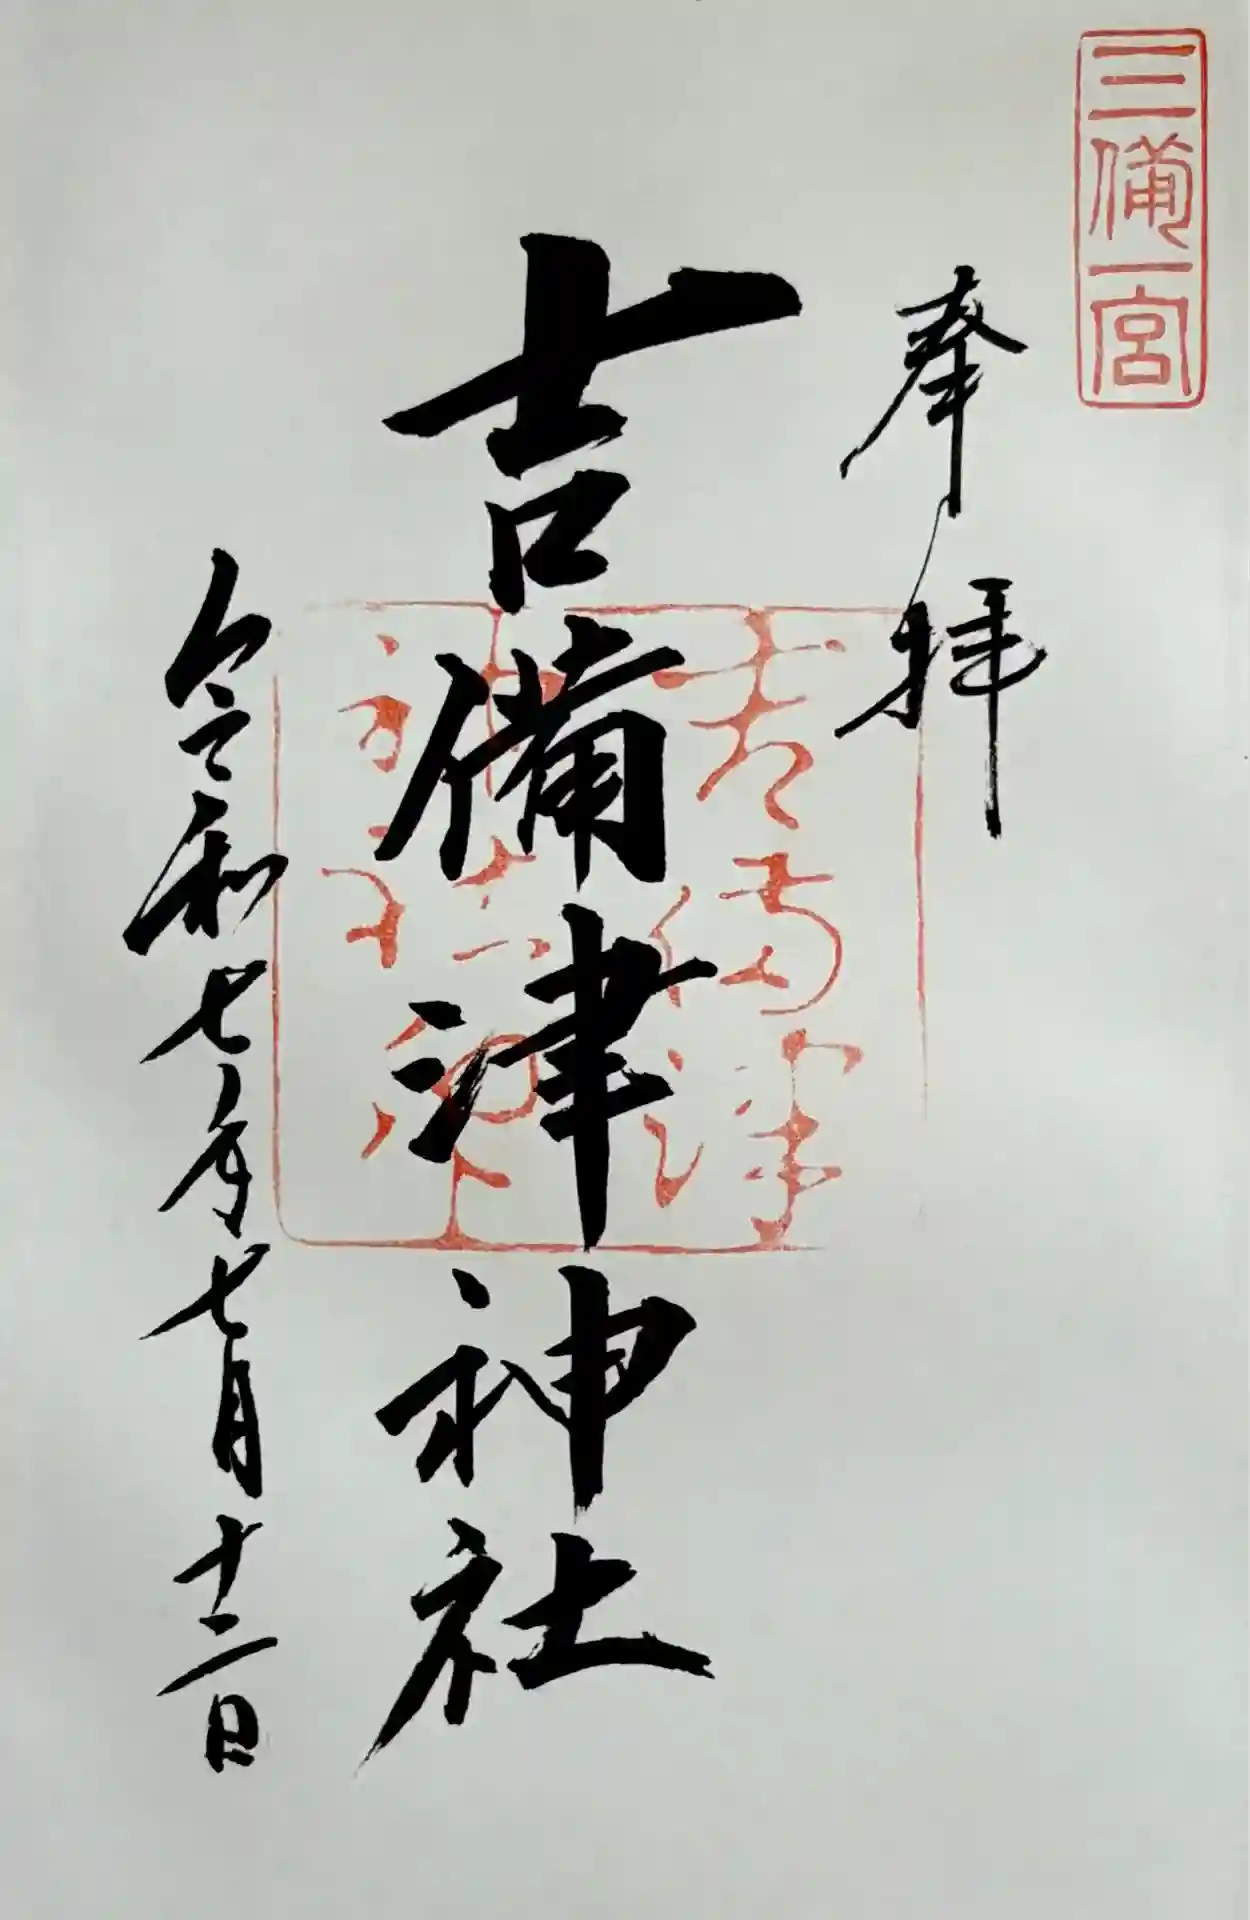 三備一宮
奉拝
吉備津神社
令和七年七月十二日
吉備津